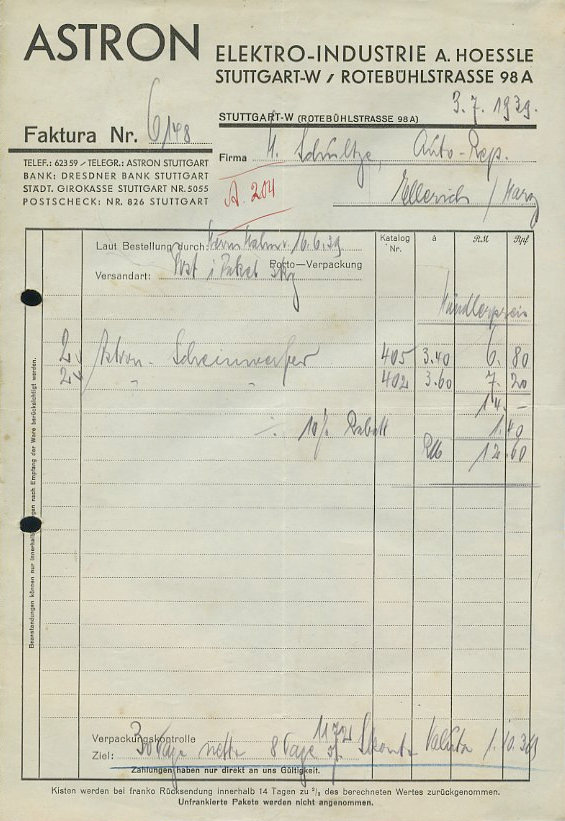 ASTRON ELEKTRO-INDUSTRIE A. HOESSLE
STUTTGART-W / ROTEBÜHLSTRASSE 98 A
STUTTGART-W (ROTEBÜHLSTRASSE 98A) 3. 7. 1939.
Faktura Nr. 6/148
Firma H. Schultze, Auto-Rep.
Ellerich / Harz
TELEF.: 62359 / TELEGR.: ASTRON STUTTGART
BANK: DRESDNER BANK STUTTGART
STÄDT. GIROKASSE STUTTGART NR. 5055
POSTSCHECK: NR. 826 STUTTGART
A. 204
Laut Bestellung durch: 16.6.39
Porto–Verpackung
Versandart: Post
Katalog Nr. à RM Rpf
Händlerpreis
2 Astron- Scheinwerfer 405 3.40 6. 80
2 " " 402 3.60 7. 20
14. –
·/. 10% Rabatt 1. 40
RM 12. 60
Beanstandungen können nur innerhalb Tagen nach Empfang der Ware berücksichtigt werden.
Verpackungskontrolle
Ziel: 30 Tage netto 8 Tage Skonto Valuta 1.10.39
Zahlungen haben nur direkt an uns Gültigkeit.
Kisten werden bei franko Rücksendung innerhalb 14 Tagen zu ²/₃ des berechneten Wertes zurückgenommen.
Unfrankierte Pakete werden nicht angenommen.